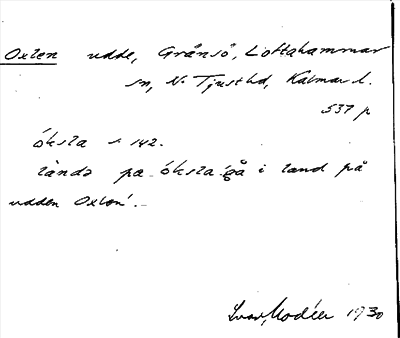 Oxlen udde, Gränsö, Loftahammar
sn, N. Tjust hd, Kalmar l.
537 p
óksla s. 142.
lànda pa óksla 'gå i land på
udden Oxlen'.
Ivar Modéer 1930